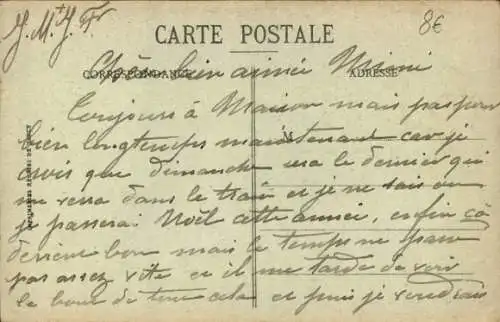 J. M + J. Fr
8€
CARTE POSTALE
CORRESPONDANCE
ADRESSE
Chère bien aimée Mimi
Toujours à Maison mais pas pour
M
bien longtemps maintenant car je
crois que dimanche sera le dernier qui
me verra dans le train et je ne sais ou
je passerai Noël cette année, enfin ça
devient bon mais le temps ne passe
pas assez vite et il me tarde de voir
le bout de tout cela et puis je voudrais